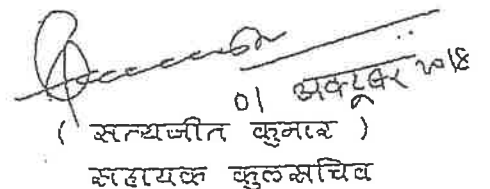 01 अक्टूबर 2018
( सत्यजीत कुमार )
सहायक कुलसचिव